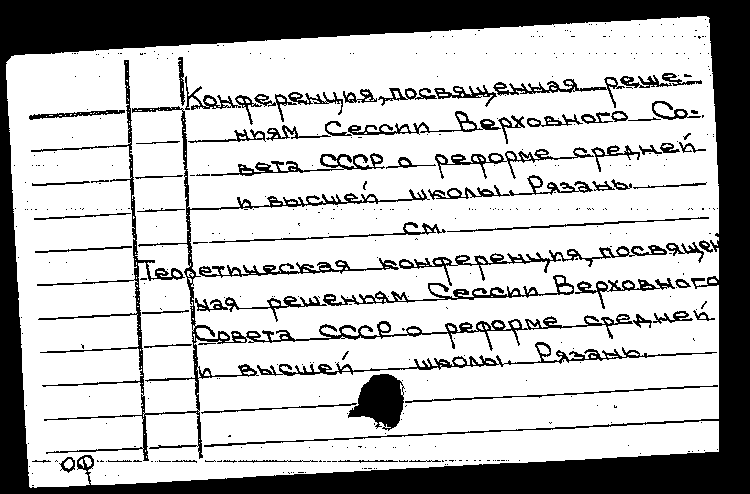 Конференция, посвященная реше-
ниям Сессии Верховного Со-
вета СССР о реформе средней
и высшей школы. Рязань.
см.
Теоретическая конференция, посвящен
ная решениям Сессии Верховного
Совета СССР о реформе средней
и высшей школы. Рязань.
оф